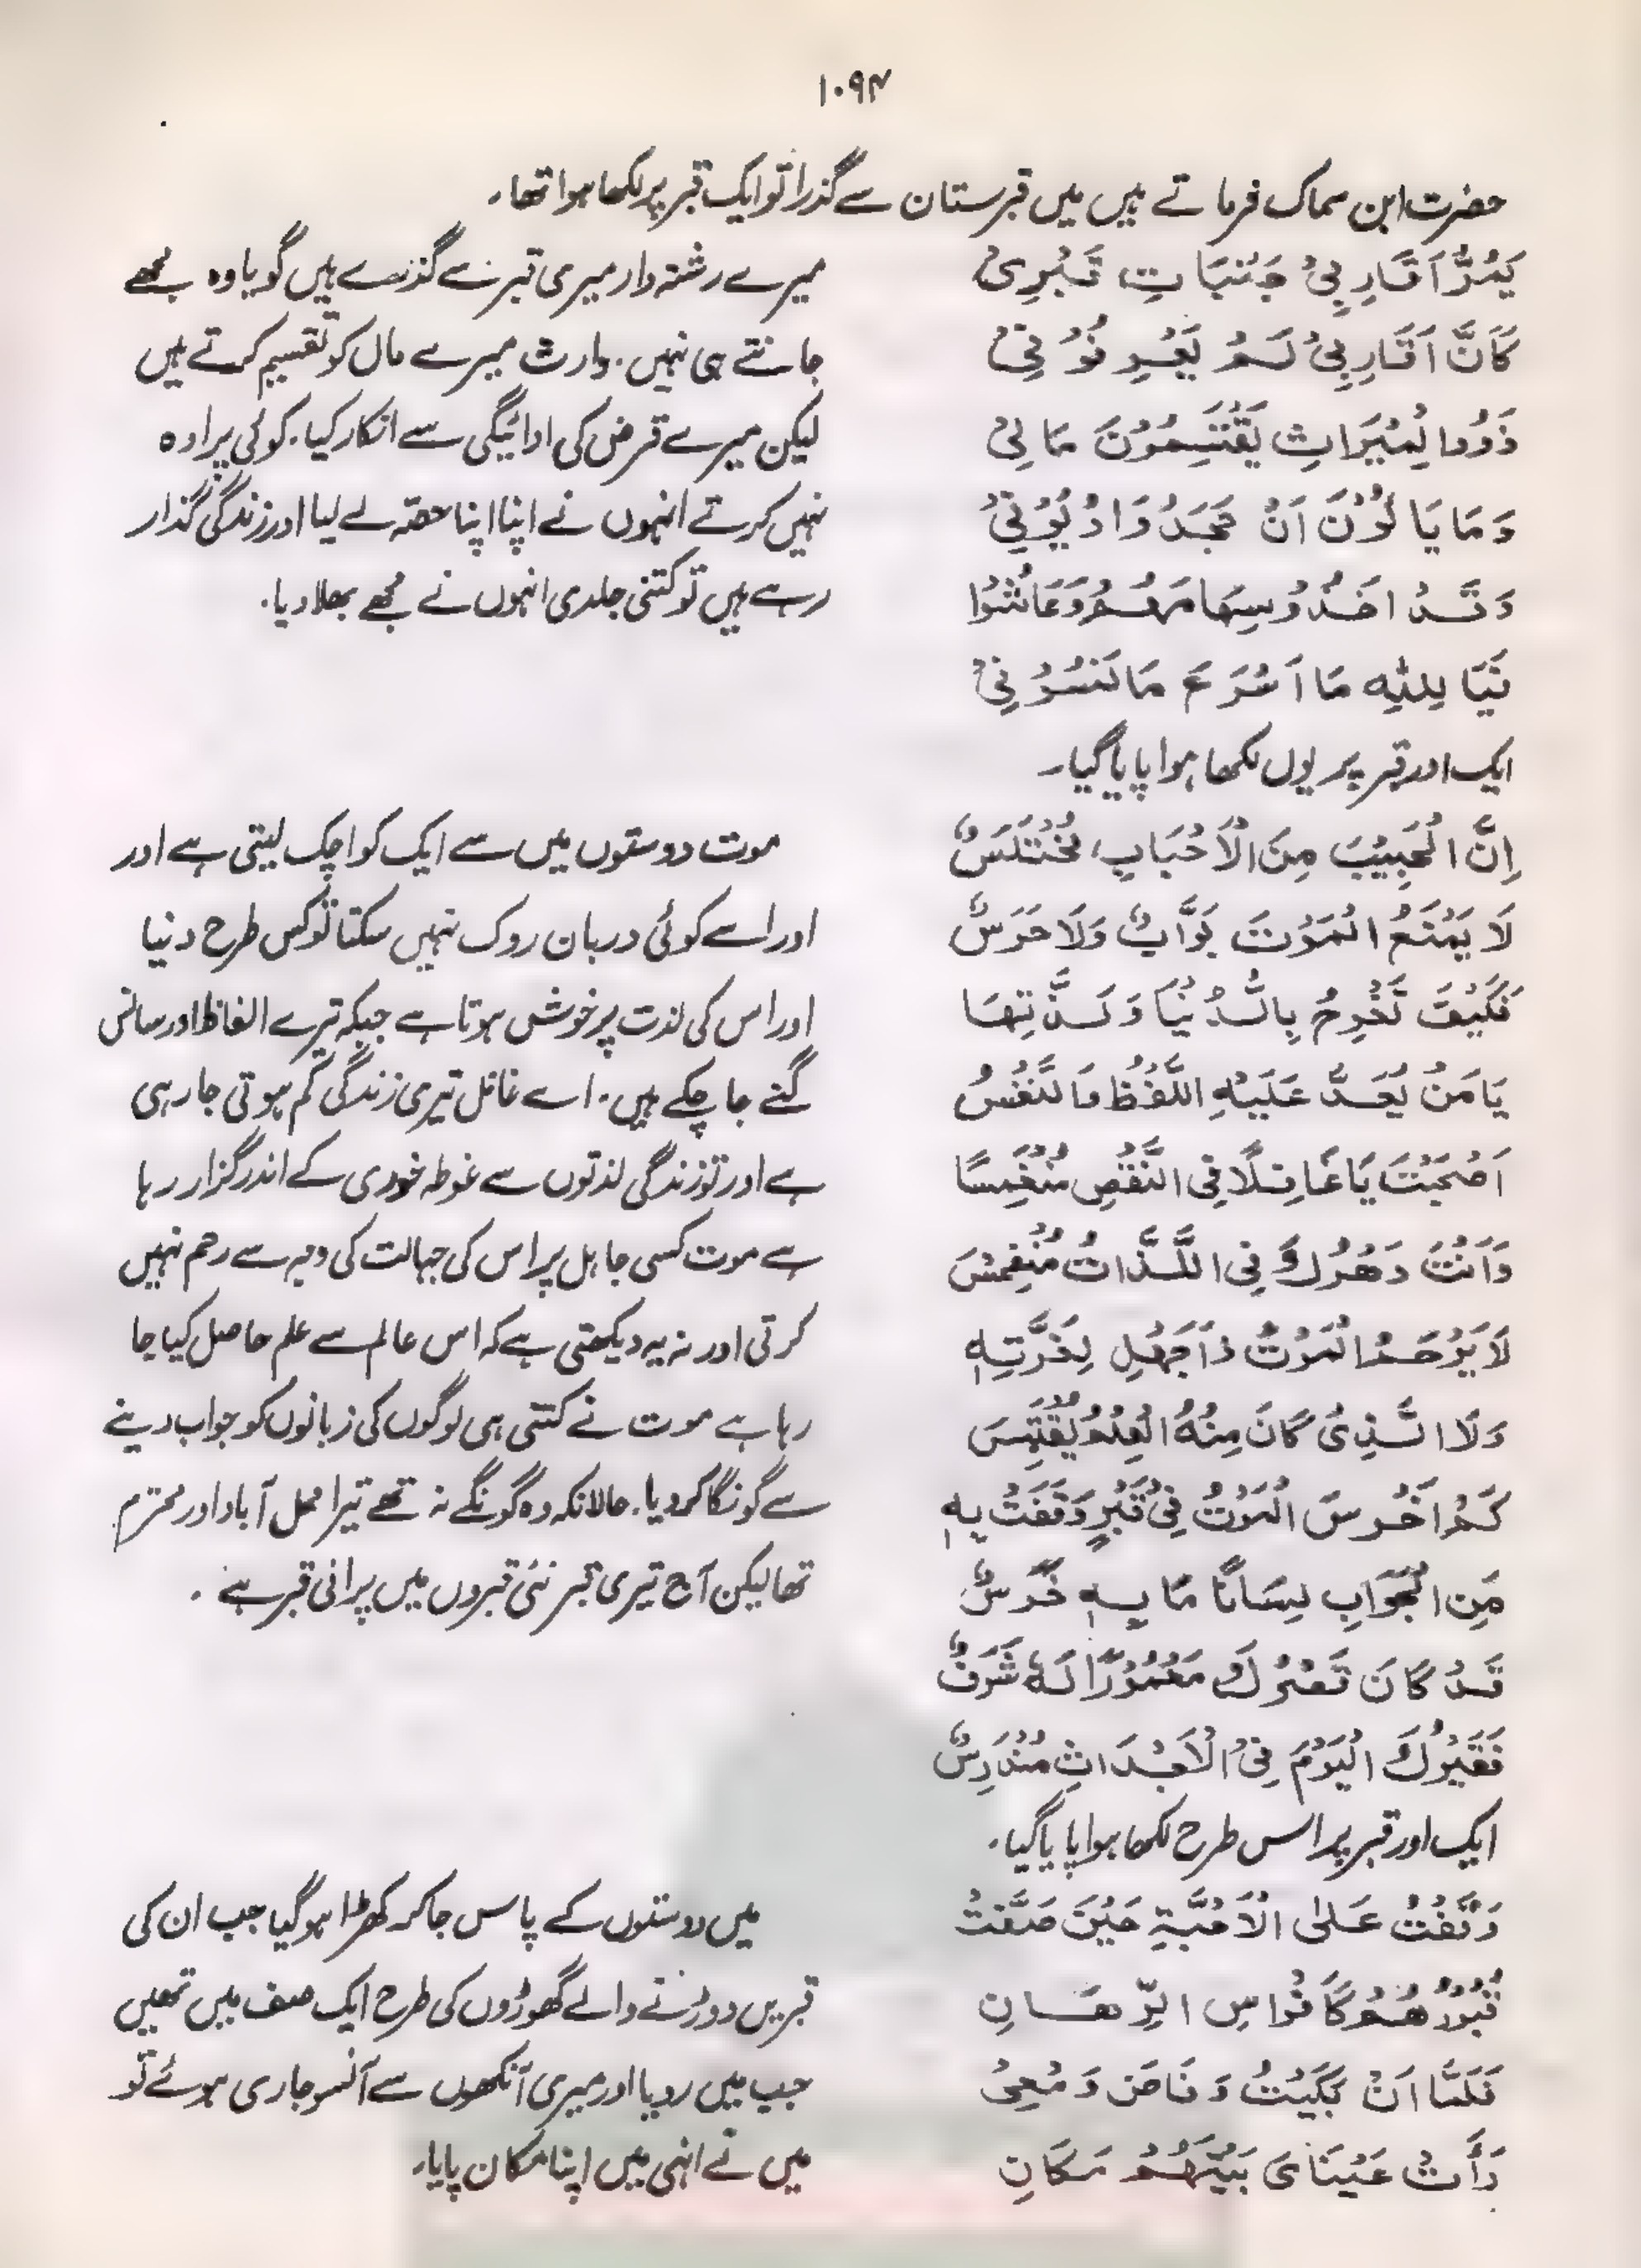 ۱۰۹۴
حضرت ابن سماک فرماتے ہیں میں قبرستان سے گذرا تو ایک قبر پر لکھا ہوا تھا۔
يَمُرُّ اَقَارِبِيْ جَنَبَاتِ قَبْرِيْ
كَاَنَّ اَقَارِبِيْ لَمْ يَعْرِفُوْنِيْ
ذَوُوا لْمِيْرَاثِ يَقْتَسِمُوْنَ مَالِيْ
وَمَا يَا لُوْنَ اَنْ جَحَدُوْا دُيُوْنِيْ
وَقَدْ اَخَذُوْ سِهَامَهُمْ وَعَاشُوْا
فَيَا لِلّٰهِ مَا اَسْرَعَ مَا نَسُوْنِيْ
میرے رشتہ دار میری قبر سے گذرے ہیں گویا وہ مجھے
جانتے ہی نہیں۔ وارث میرے مال کو تقسیم کرتے ہیں
لیکن میرے قرض کی ادائیگی سے انکار کیا۔ کوئی پراوہ
نہیں کرتے انہوں نے اپنا اپنا حصّہ لے لیا اور زندگی گذار
رہے ہیں تو کتنی جلدی انہوں نے مجھے بھلا دیا۔
ایک اور قبر پر یوں لکھا ہوا پایا گیا۔
اِنَّ الْحَبِيْبَ مِنَ الْاَحْبَابِ مُخْتَلَسٌ
لَا يَمْنَعُ الْمَوْتَ بَوَّابٌ وَلَا حَرَسٌ
فَكَيْفَ تَفْرِحُ بِالدُّنْيَا وَلَذَّتِهَا
يَا مَنْ يُعَدُّ عَلَيْهِ اللَّفْظُ وَالنَّفْسُ
اَصْبَحْتَ يَا غَافِلًا فِى النَّقْصِ مُنْغَمِسًا
وَاَنْتَ دَهْرُكَ فِى اللَّذَّاتُ مُنْغَمِسَ
لَا يَرْحَمُ الْمَوْتُ ذَا جَهْلٍ لِغَرَّتِهٖ
وَلَا الَّذِىْ كَانَ مِنْهُ الْعِلْمُ يُقْتَبِسَ
كَمْ اَخْرَسَ الْمَوْتُ فِىْ قَبْرٍ وَقَفَتْ بِهٖ
مَنِ الْجَوَابِ لِسَانًا مَا بِهٖ خَرَسٌ
قَدْ كَانَ قَصْرُكَ مَعْمُوْرًا لَهٗ شَرَفٌ
فَقَبْرُكَ الْيَوْمَ فِىْ الْاَجْدَاثِ مُنْدَرِسٌ
موت دوستوں میں سے ایک کو اچک لیتی ہے اور
اور اسے کوئی دربان روک نہیں سکتا تو کس طرح دنیا
اور اس کی لذت پر خوش ہوتا ہے جبکہ تیرے الفاظ اور سانس
گنے جا چکے ہیں۔ اے غافل تیری زندگی کم ہوتی جا رہی
ہے اور تو زندگی لذتوں سے غوطہ خوری کے اندر گزار رہا
ہے موت کسی جاہل پر اس کی جہالت کی وجہ سے رحم نہیں
کرتی اور نہ یہ دیکھتی ہے کہ اس عالم سے علم حاصل کیا جا
رہا ہے موت نے کتنی ہی لوگوں کی زبانوں کو جواب دینے
سے گونگا کر دیا۔ حالانکہ وہ گونگے نہ تھے تیرا محل آباد اور محترم
تھا لیکن آج تیری قبر نئی قبروں میں پرانی قبر ہے۔
ایک اور قبر پر اس طرح لکھا ہوا پایا گیا۔
وَقَفْتُ عَلٰى الْاَحِبَّةِ حَيْنَ صَفَّتْ
قُبُوْرُ هُمْ كَاَفْرَاسِ الرِّهَانِ
فَلَمَّا اَنْ بَكَيْتُ وَفَاضَ دَمْعِىْ
رَأَتْ عَيْنَاىَ بَيْنَهُمْ مَكَانِ
میں دوستوں کے پاس جا کر کھڑا ہو گیا جب ان کی
قبریں دوڑنے والے گھوڑوں کی طرح ایک صف میں تھیں
جب میں رویا اور میری آنکھوں سے آنسو جاری ہوئے تو
میں نے انہی میں اپنا مکان پایا۔